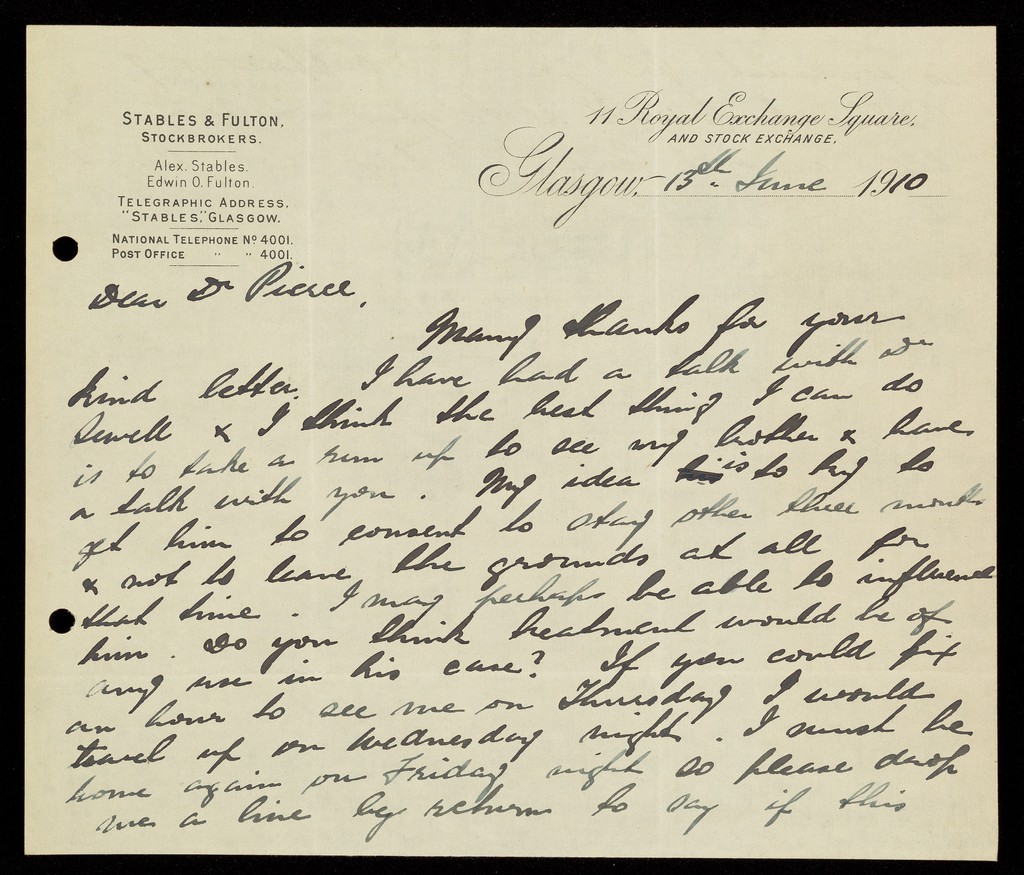 STABLES & FULTON,
STOCKBROKERS.
Alex. Stables.
Edwin O. Fulton.
TELEGRAPHIC ADDRESS,
"STABLES", GLASGOW.
NATIONAL TELEPHONE Nº 4001.
POST OFFICE " " 4001.
11 Royal Exchange Square,
AND STOCK EXCHANGE,
Glasgow, 13th June 1910
Dear Dr Pierce,
Many thanks for your
kind letter. I have had a talk with Dr
Sewell & I think the best thing I can do
is to take a run up to see my brother & have
a talk with you. My idea is to try to
get him to consent to stay other three months
& not to leave the grounds at all for
that time. I may perhaps be able to influence
him. Do you think treatment would be of
any use in his case? If you could fix
an hour to see me on Thursday I would
travel up on Wednesday night. I must be
home again on Friday night so please drop
me a line by return to say if this